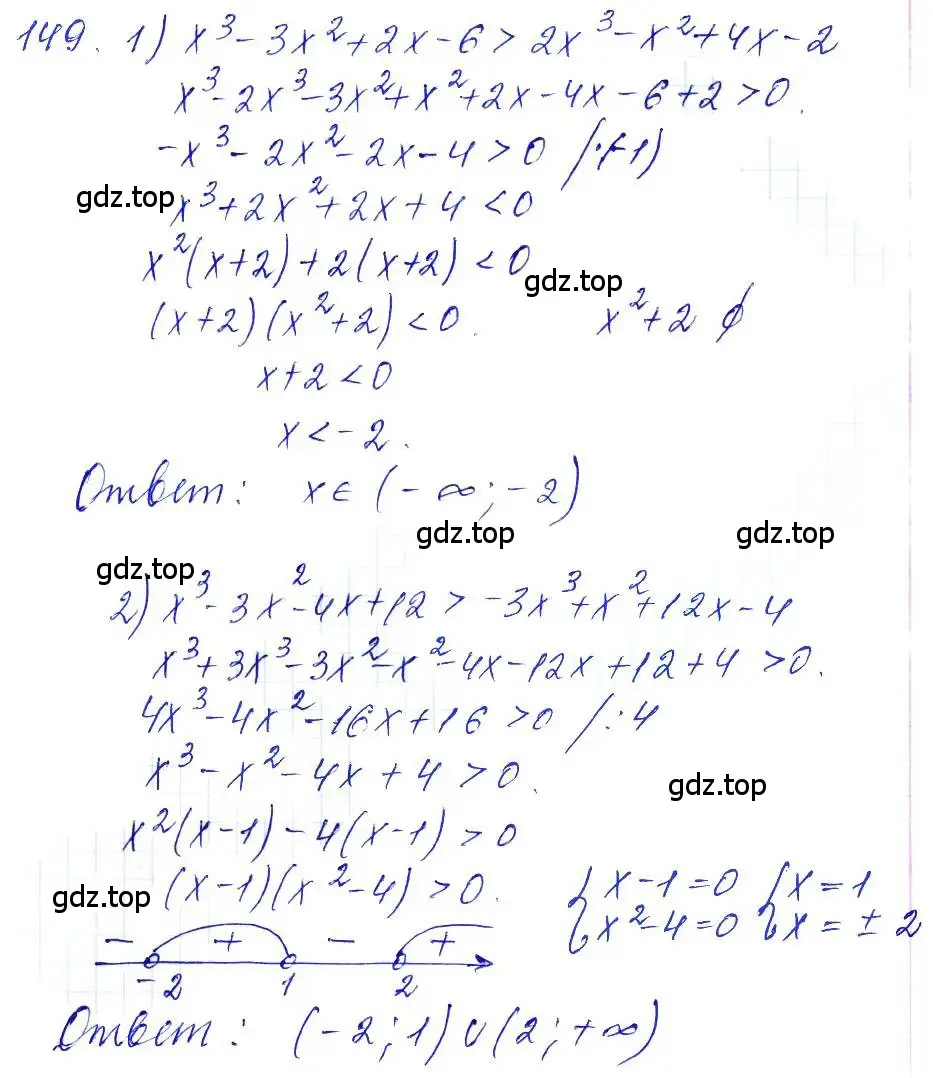 149. 1) x³ - 3x² + 2x - 6 > 2x³ - x² + 4x - 2
x³ - 2x³ - 3x² + x² + 2x - 4x - 6 + 2 > 0.
-x³ - 2x² - 2x - 4 > 0 /·(-1)
gdz.top x³ + 2x² + 2x + 4 < 0
x²(x+2) + 2(x+2) < 0
gdz.top
(x+2)(x²+2) < 0. x²+2 ∅
x+2 < 0
x < -2.
Ответ: x ∈ (-∞; -2)
gdz.top gdz.top
gdz.top
2) x³ - 3x² - 4x + 12 > -3x³ + x² + 12x - 4
x³ + 3x³ - 3x² - x² - 4x - 12x + 12 + 4 > 0.
4x³ - 4x² - 16x + 16 > 0 /:4
x³ - x² - 4x + 4 > 0.
gdz.top
x²(x-1) - 4(x-1) > 0
gdz.top (x-1)(x²-4) > 0. { x-1=0 { x=1
x²-4=0 x=±2
- + - +
-2 1 2
Ответ: (-2; 1) ∪ (2; +∞)